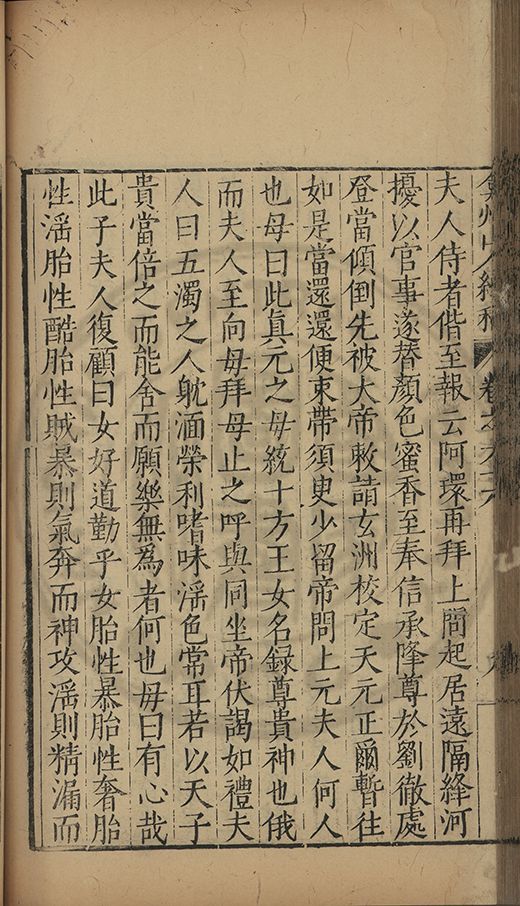 弇州山人續稿 卷之六十六 九
夫人侍者偕至報云阿環再拜上問起居遠隔絳河
擾以官事遂替顏色蜜香至奉信承降尊於劉徹處
登當傾倒先被大帝敕請玄洲校定天元正爾暫往
如是當還還便束帶須臾少留帝問上元夫人何人
也母曰此真元之母統十方王女名錄尊貴神也俄
而夫人至向母拜母止之呼與同坐帝伏謁如禮夫
人曰五濁之人躭湎榮利嗜味淫色常耳若以天子
貴當倍之而能舍而願樂無為者何也母曰有心哉
此子夫人復顧曰女好道勤乎女胎性暴胎性奢胎
性淫胎性酷胎性賊暴則氣奔而神攻淫則精漏而